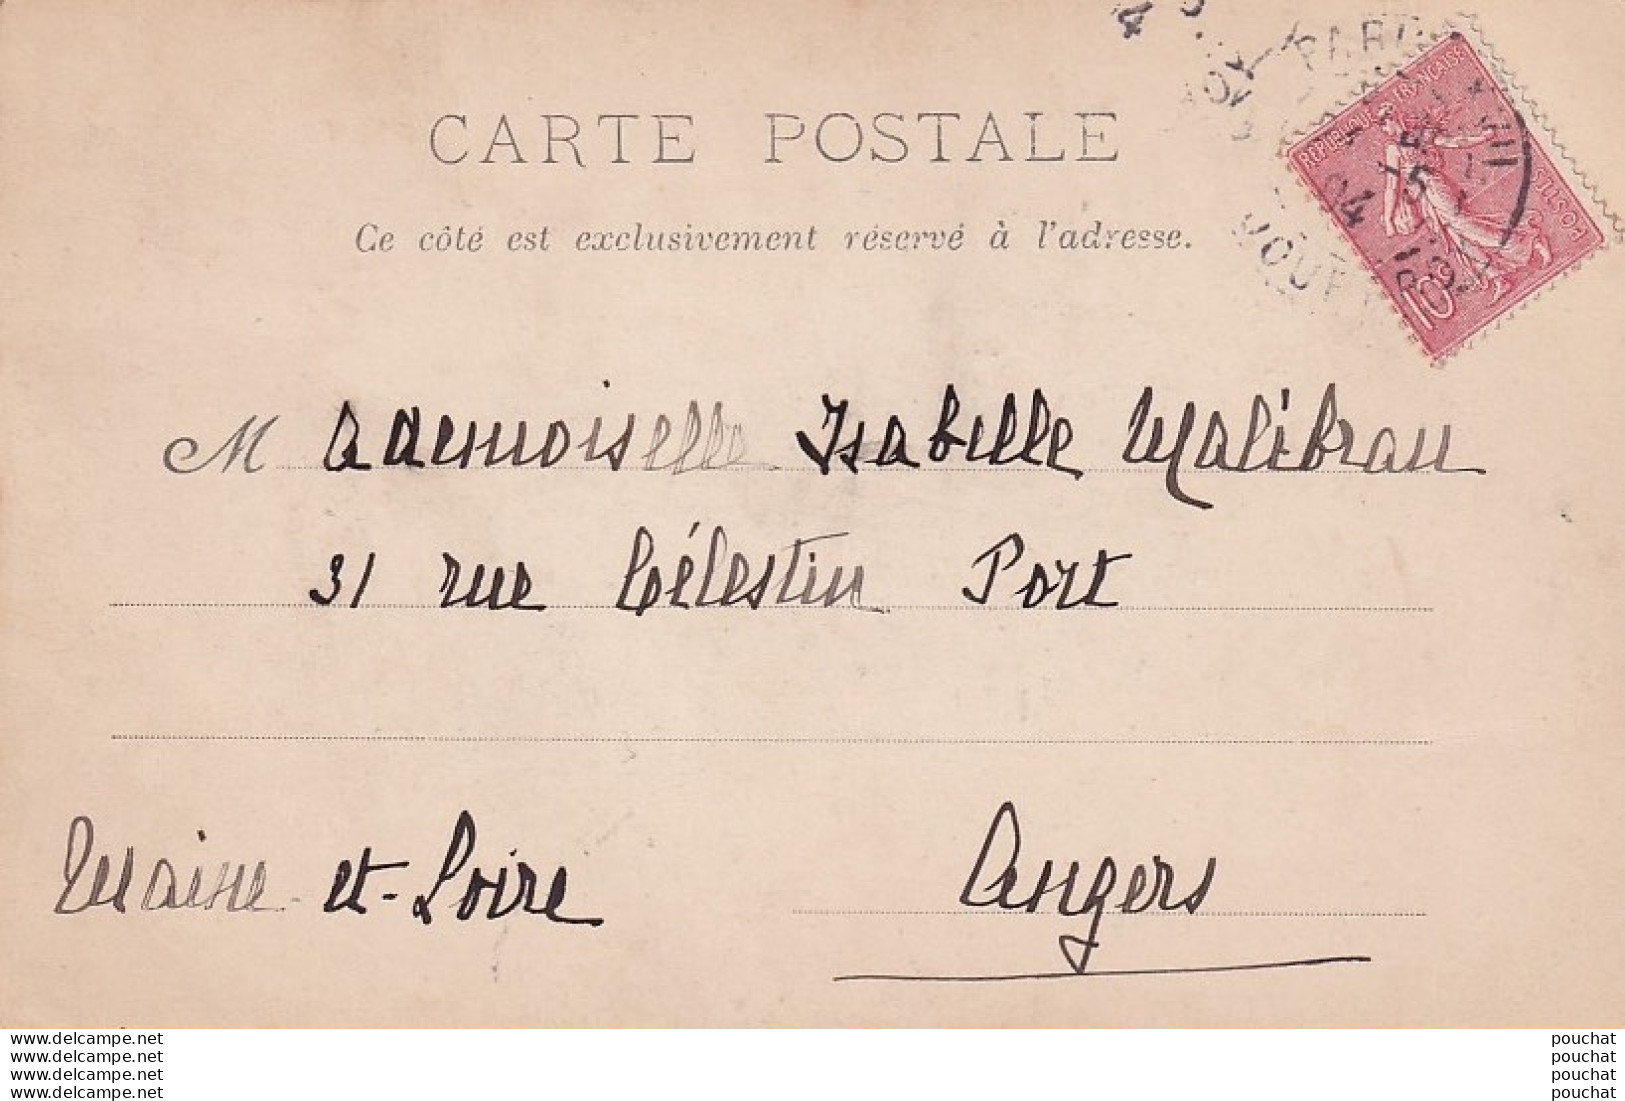 CARTE POSTALE
Ce côté est exclusivement réservé à l'adresse.
RÉPUBLIQUE FRANÇAISE
POSTES
10
04
Mademoiselle Isabelle Malibran
31 rue Célestin Port
Maine-et-Loire Angers
www.delcampe.net pouchat
www.delcampe.net pouchat
www.delcampe.net pouchat
www.delcampe.net pouchat